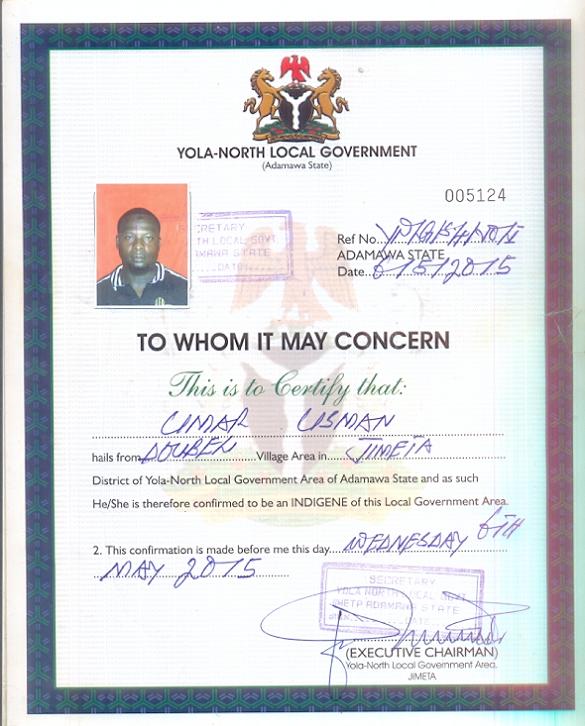 YOLA-NORTH LOCAL GOVERNMENT
(Adamawa State)
005124
SECRETARY
TH LOCAL GOVT
AMAWA STATE
DATE
Ref No.
ADAMAWA STATE
Date 6/5/2015
TO WHOM IT MAY CONCERN
This is to Certify that:
UMAR USMAN
hails from DOUBELI Village Area in JIMETA
District of Yola-North Local Government Area of Adamawa State and as such
He/She is therefore confirmed to be an INDIGENE of this Local Government Area.
2. This confirmation is made before me this day WEDNESDAY 6TH
MAY 2015
SECRETARY
YOLA NORTH LOCAL GOVT
ADAMAWA STATE
DATE
(EXECUTIVE CHAIRMAN)
Yola-North Local Government Area,
JIMETA